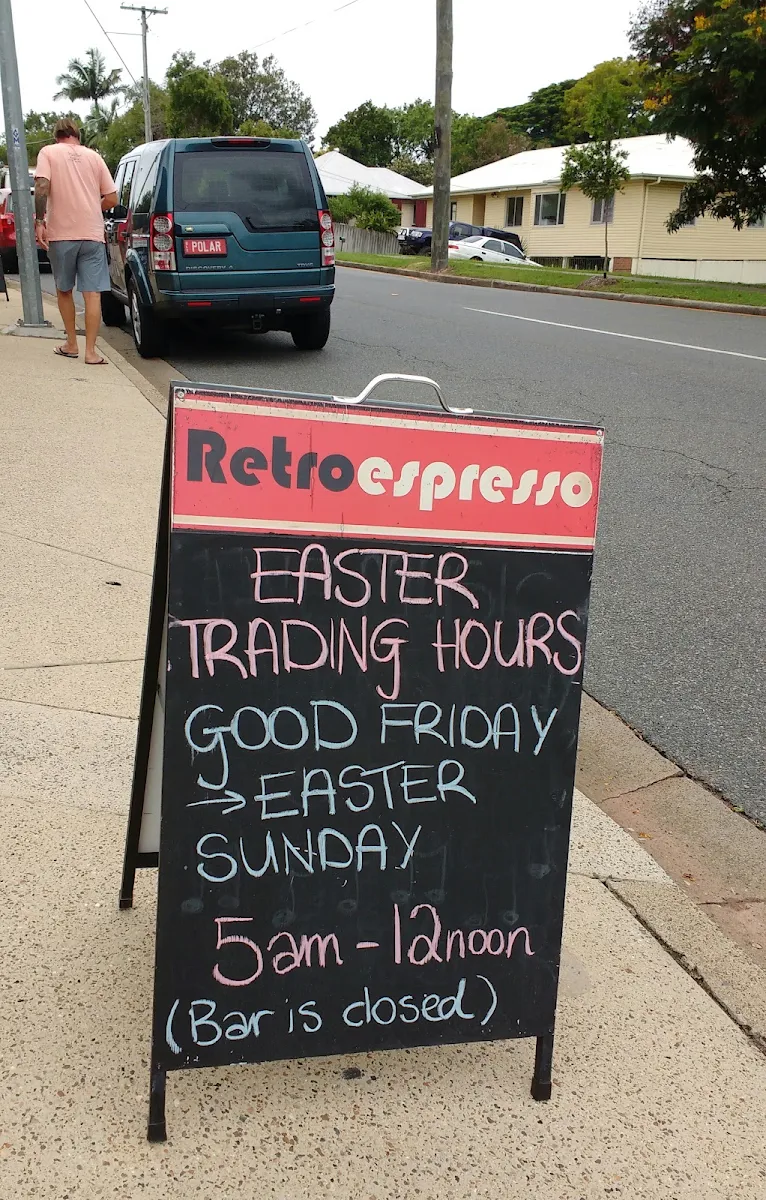 POLAR
DISCOVERY 4
Retroespresso
EASTER
TRADING HOURS
GOOD FRIDAY
→ EASTER
SUNDAY
5am - 12noon
(Bar is closed)